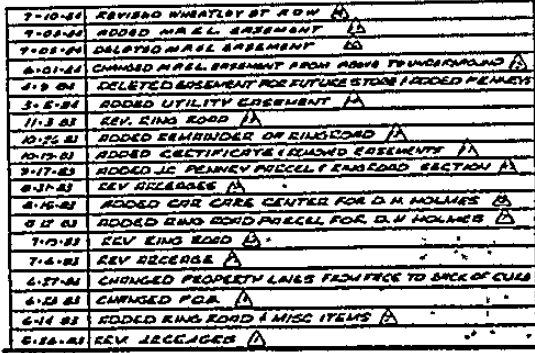 7-10-84 REVISED WHEATLEY ST R.O.W.
7-05-84 ADDED M.P.&L. EASEMENT
7-05-84 DELETED M.P.&L. EASEMENT
6-01-84 CHANGED M.P.&L. EASEMENT FROM ABOVE TO UNDERGROUND
4-9-84 DELETED EASEMENT FOR FUTURE STORE & ADDED PENNEYS
3-5-84 ADDED UTILITY EASEMENT
11-3-83 REV. RING ROAD
10-26-83 ADDED REMAINDER OF RING ROAD
ADDED CERTIFICATE & REMOVED EASEMENTS
9-17-83 ADDED JC PENNEY PARCEL & RING ROAD SECTION
8-31-83 REV ACREAGES
ADDED CAR CARE CENTER FOR D.H. HOLMES
ADDED RING ROAD PARCEL FOR D.H. HOLMES
REV RING ROAD
7-6-83 REV ACREAGE
6-27-83 CHANGED PROPERTY LINES FROM FACE TO BACK OF CURB
CHANGED P.O.B.
ADDED RING ROAD & MISC ITEMS
REV. ACREAGES